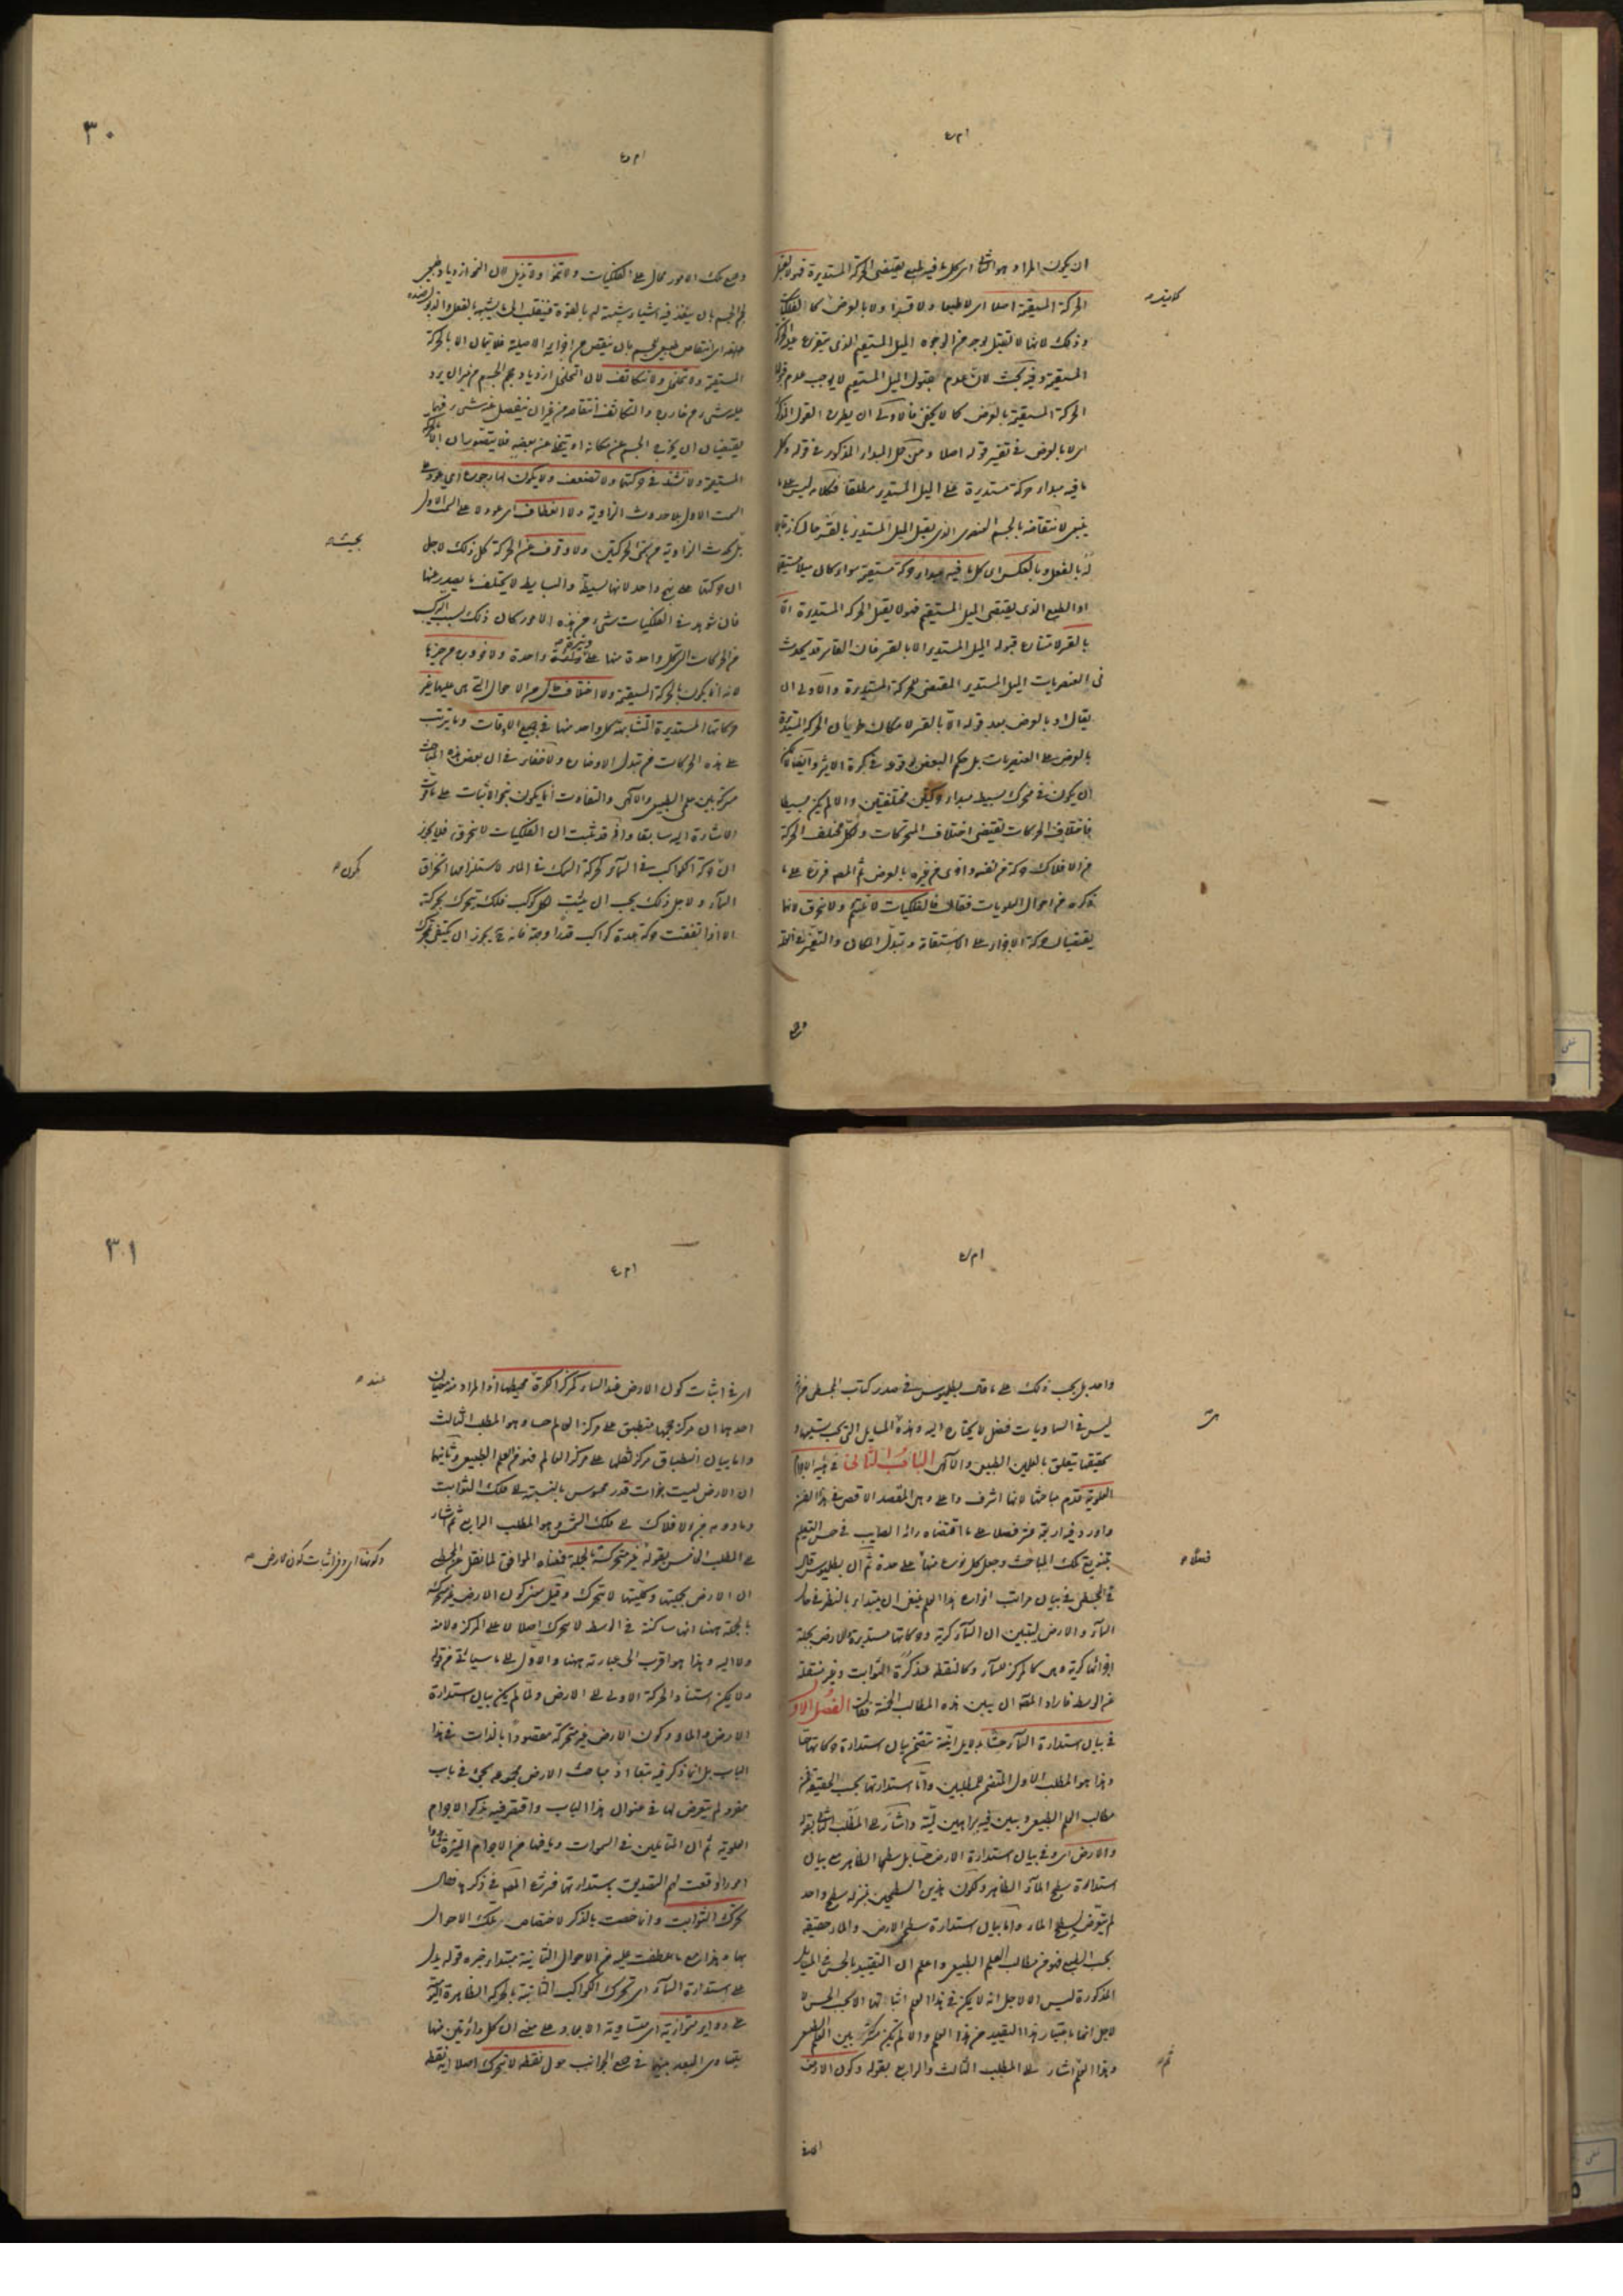 ان يكون المراد هو الثانى اى كل ما فيه طبع يقتضى الحركة المستديرة فهو لا يقبل
الحركة المستقيمة اصلا اى لا طبعا ولا قسرا ولا بالعرض كالفلكيات
وذلك لانها لا تقبل بوجه من الوجوه الميل المستقيم الذى
المستقيمة وفيه بحث لان عدم قبول الميل المستقيم لا يوجب عدم قبول
الحركة المستقيمة بالعرض كما لا يخفى فالاولى ان يطرح القول
اى لا بالعرض فى تفسير قوله اصلا ومن حمل المبدأ المذكور فى قوله وكل
ما فيه مبدأ حركة مستديرة على الميل المستدير مطلقا فكلامه ليس على ما
ينبغى لانتقاضه بالجسم العنصرى الذى يقبل الميل المستدير بالقسر حال
له بالفعل وبالعكس اى كل ما فيه مبدأ حركة مستقيمة سواء كان ميلا مستقيما
او الطبع الذى يقتضى الميل المستقيم فهو لا يقبل الحركة المستديرة الا
بالقسر لامتناع قبوله الميل المستدير الا بالقسر فان القاسر قد يحدث
فى العنصريات الميل المستدير المقتضى للحركة المستديرة والاولى ان
يقال او بالعرض بعد قوله الا بالقسر لامكان طريان الحركة المستديرة
بالعرض على العنصريات بل حكم البعض بوقوعه فى كرة الاثير وايضا
ان يكون فى متحرك بسيط مبدأ حركتين مختلفتين والا لم يكن بسيطا
فاختلاف الحركات يقتضى اختلاف المتحركات ولكل مختلف الحركة
من الافلاك حركة من نفسه واخرى من غيره بالعرض ثم المصنف فرع على ما
ذكره من احوال العلويات فقال فالفلكيات لا تلتئم ولا تنخرق لانهما
يقتضيان حركة الاجزاء على الاستقامة وتبدل المكان والتغير
٣٠
وجميع تلك الامور محال على الفلكيات ولا تنمو ولا تذبل لان النمو ازدياد طبيعى
لحجم الجسم بان ينفذ فيه اشياء شبيهة له بالقوة فينقلب الى ما يشبهه بالفعل والذبول
انتقاص طبيعى للجسم بان ينقص من اجزائه الاصلية فلا يتمان الا بالحركة
المستقيمة ولا تتخلخل ولا تتكاثف لان التخلخل ازدياد حجم الجسم من غير ان يزد
عليه شىء من خارج والتكاثف انتقاصه من غير ان ينفصل عنه شىء فهما
يقتضيان ان يخرج الجسم عن مكانه او يتخلى عن بعضه فلا يتصوران الا بالحركة
المستقيمة ولا تشتد فى حركتها ولا تضعف ولا يكون لها رجوع اى عود على
السمت الاول بلا حدوث الزاوية ولا انعطاف اى عود لا على السمت الاول
بل بحدوث الزاوية من الحركتين ولا وقوف عن الحركة كل ذلك لاجل
بحيث
ان حركتها على نهج واحد لانها بسيطة والبسيط لا يختلف ما يصدر عنها
فان شوهد فى الفلكيات شىء من هذه الامور كان ذلك بسبب التركب
من الحركات التى كل واحدة منها على وتيرة واحدة ولا خروج من حيزها
لانه انما يكون بالحركة المستقيمة ولا اختلاف حال من الاحوال التى هى عليها غير
حركاتها المستديرة المتشابهة كل واحد منها فى جميع الاوقات وما يترتب
على هذه الحركات من تبدل الاوضاع ولا خفاء فى ان بعض هذه المباحث
مشتركة بين علمى الطبيعى والالهى والتفاوت انما يكون بنحو الاثبات على ما مرت
الاشارة اليه سابقا واذ قد ثبت ان الفلكيات لا تنخرق فلا يجوز
ان حركة الكواكب فى السماء كحركة السمك فى الماء لاستلزامها انخراق
كون
السماء ولاجل ذلك يجب ان يثبت لكل كوكب فلك يتحرك بحركته
الا اذا اتفقت حركة عدة كواكب قدرا وجهة فانه يجوز ان يكتفى بتحرك
واحد بل يجب ذلك على ما قال بطليموس فى صدر كتاب المجسطى من انه
ليس فى السماويات فضل لا يحتاج اليه وهذه المسايل التى يجب تسليمها و
تحقيقها يتعلق بالعلمين الطبيعى والالهى الباب الثانى فى هيئة الاجرام
العلوية قدم مباحثها لانها اشرف واعلى وهى المقصد الاقصى فى هذا الفن
واورد فيه اربعة عشر فصلا على ما اقتضاه رائه الصايب فى حسن التعليم
بتنويع تلك المباحث وجعل كل نوع منها على حدة ثم ان بطليموس قال
فى المجسطى فى بيان مراتب اجزاء هذا العلم ينبغى ان يبتداء بالنظر فى حال
السماء والارض ليتبين ان السماء كرية وحركاتها مستديرة والارض بجملة
اجزائها كرية وهى كالمركز للسماء وكالنقطة عند كرة الثوابت وغير منتقلة
عن الوسط فاراد المصنف ان يبين هذه المطالب الخمسة فقال الفصل الاول
فى بيان استدارة السماء حسا بدلايل انية تتضمن بيان استدارة حركاتها حسا
وهذا هو المطلب الاول المتضمن لمطلبين واما استدارتها بحسب الحقيقة فمن
مطالب العلم الطبيعى ويبين فيه ببراهين لمية واشار الى المطلب الثانى بقوله
والارض اى وفى بيان استدارة الارض حسا بل سطحها الظاهر مع بيان
استدارة سطح الماء الظاهر ولكون هذين السطحين بمنزلة سطح واحد
لم يتعرض لسطح الماء واما بيان استدارة سطحى الارض والماء حقيقة
بحسب الطبع فهو من مطالب العلم الطبيعى واعلم ان التقييد بالحس فى المسايل
المذكورة ليس الا لاجل انه لا يمكن فى هذا العلم اثباتها الا بحسب الحس لا
لاجل انها باعتبار هذا التقييد من هذا العلم والا لم تكن مشتركة بين العلم الطبيعى
وهذا العلم اشار الى المطلب الثالث والرابع بقوله وكون الارض
ثم
٣١
اى فى اثبات كون الارض عند السماء كمركز الكرة عند محيطها
احدهما ان مركز حجمها منطبق على مركز العالم حسا وهو المطلب الثالث
واما بيان انطباق مركز ثقلها على مركز العالم فهو من العلم الطبيعى وثانيهما
ان الارض ليست بذات قدر محسوس بالنسبة الى فلك الثوابت
وما دونه من الافلاك الى فلك الشمس وهو المطلب الرابع ثم اشار
الى المطلب الخامس بقوله غير متحركة بالجملة فمعناه الموافق لما نقل عن المجسطى
وكونها اى وفى اثبات كون الارض
ان الارض بجملتها وكليتها لا تتحرك وقيل معنى كون الارض غير متحركة
بالجملة ههنا انها ساكنة فى الوسط لا تتحرك اصلا لا على المركز ولا منه
ولا اليه وهذا هو اقرب الى عبارته ههنا والاول على ما سيأتى من قوله
ولا يمكن استناد الحركة الاولى الى الارض ولما لم يكن بيان استدارة
الارض والماء وكون الارض غير متحركة مقصودا بالذات فى هذا
الباب بل انما ذكر فيه تبعا اذ مباحث الارض مجموعة يجئ فى باب
مفرد لم يتعرض لها فى عنوان هذا الباب واقتصر فيه بذكر الاجرام
العلوية ثم ان المتأملين فى السموات وما فيها من الاجرام النيرة شاهدوا
امورا اوقعت لهم التصديق باستدارتها فشرع المصنف فى ذكرها فقال
تحرك الثوابت وانما خصت بالذكر لاختصاص تلك الاحوال
بها وهذا مع ما عطفت عليه من الاحوال الثمانية مبتداء خبره قوله يدل
على استدارة السماء اى تحرك الكواكب الثابتة بالحركة الظاهرة
على دواير متوازية اى متساوية الابعاد على معنى ان كل دائرتين منها
يتساوى البعد بينهما فى جميع الجوانب حول نقطة لا تتحرك اصلا